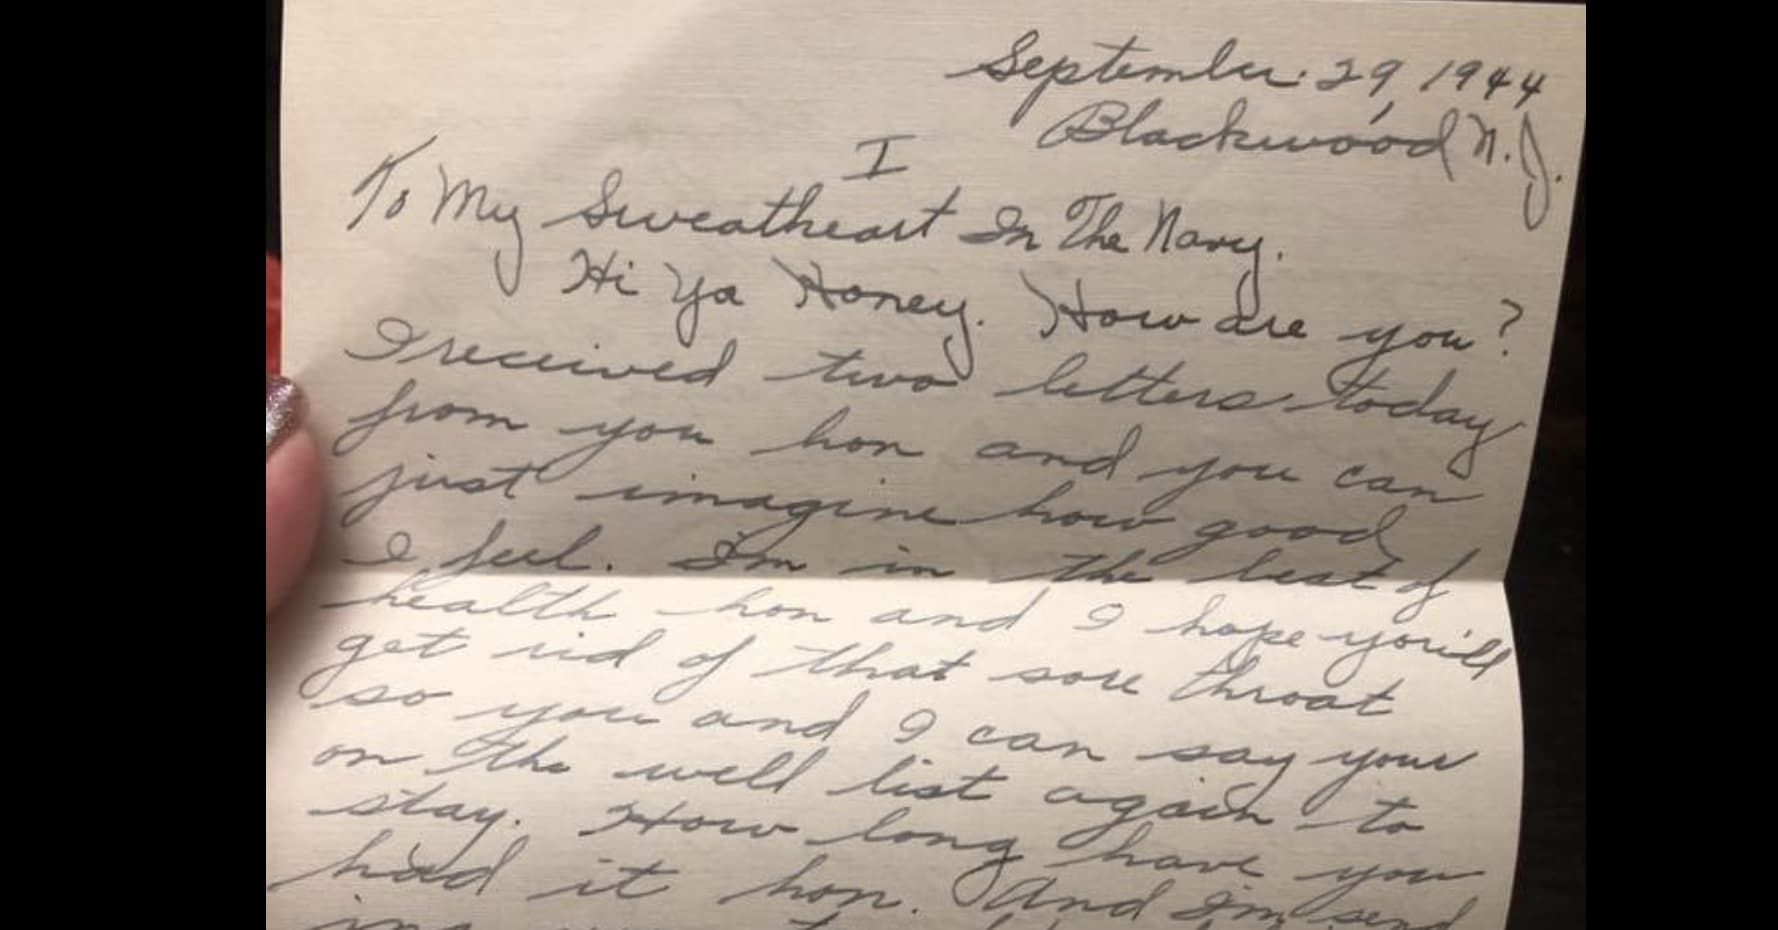 September 29, 1944
Blackwood N.J.
I
To My Sweatheart In The Navy.
Hi Ya Honey. How are you?
I received two letters today
from you hon and you can
just imagine how good
I feel. I'm in the best of
health hon and I hope you'll
get rid of that sore throat
so you and I can say your
on the well list again to
stay. How long have you
had it hon. And I'm send
ing you